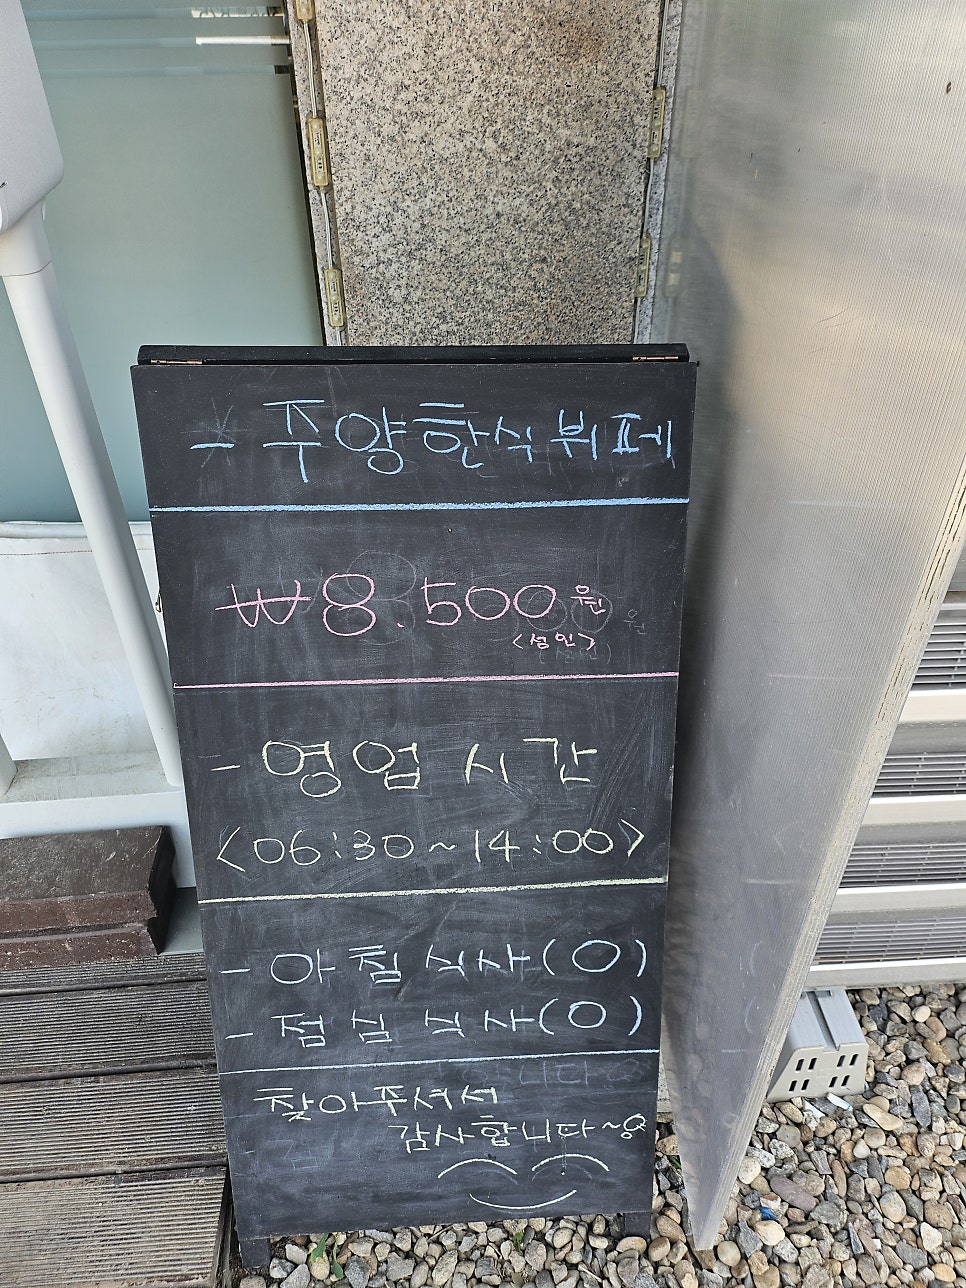 - 주양한식뷔페
₩8.500원
<성인>
- 영업 시간
<06:30~14:00>
- 아침식사(O)
- 점심식사(O)
찾아주셔서
감사합니다~^^